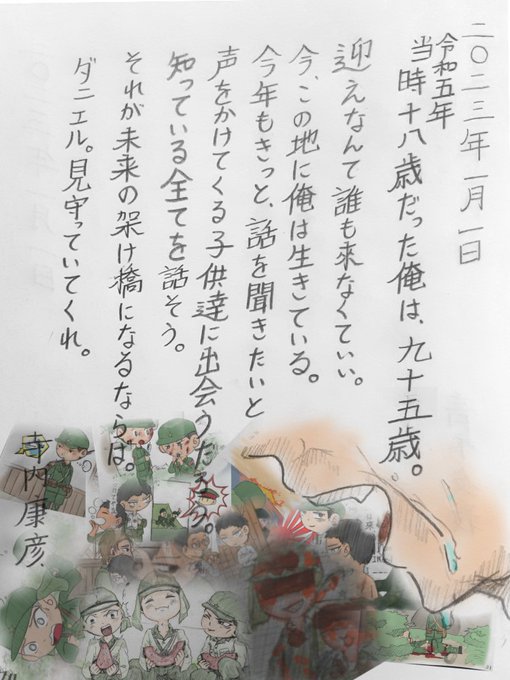 二〇二三年一月一日
令和五年
当時十八歳だった俺は、九十五歳。
迎えなんて誰も来なくていい。
今、この地に俺は生きている。
今年もきっと、話を聞きたいと
声をかけてくる子供達に出会うだろう。
知っている全てを話そう。
それが未来の架け橋になるならば。
ダニエル。見守っていてくれ。
寺内康彦、